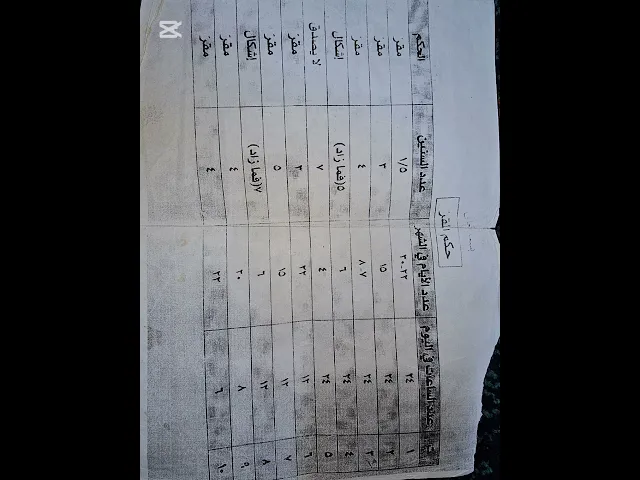 حكم المقر
عدد الساعات في اليوم عدد الأيام في الشهر عدد السنين الحكم
١ ٢٤ ١/٥ مقر
٢ ٢٤ ١٥ ٣ مقر
٣ ٢٤ ٧-٨ ٤ مقر
٤ ٢٤ ٦ ٥(فما زاد) إشكال
٥ ٢٤ ٤ ٧ لا يصدق
٦ ١٢ ٢٢ ٣ مقر
٧ ١٢ ١٥ ٥ مقر
٨ ١٢ ٦ ٧(فما زاد) إشكال
٩ ٨ ٢٠ ٤ مقر
١٠ ٦ ٢٢ ٤ مقر